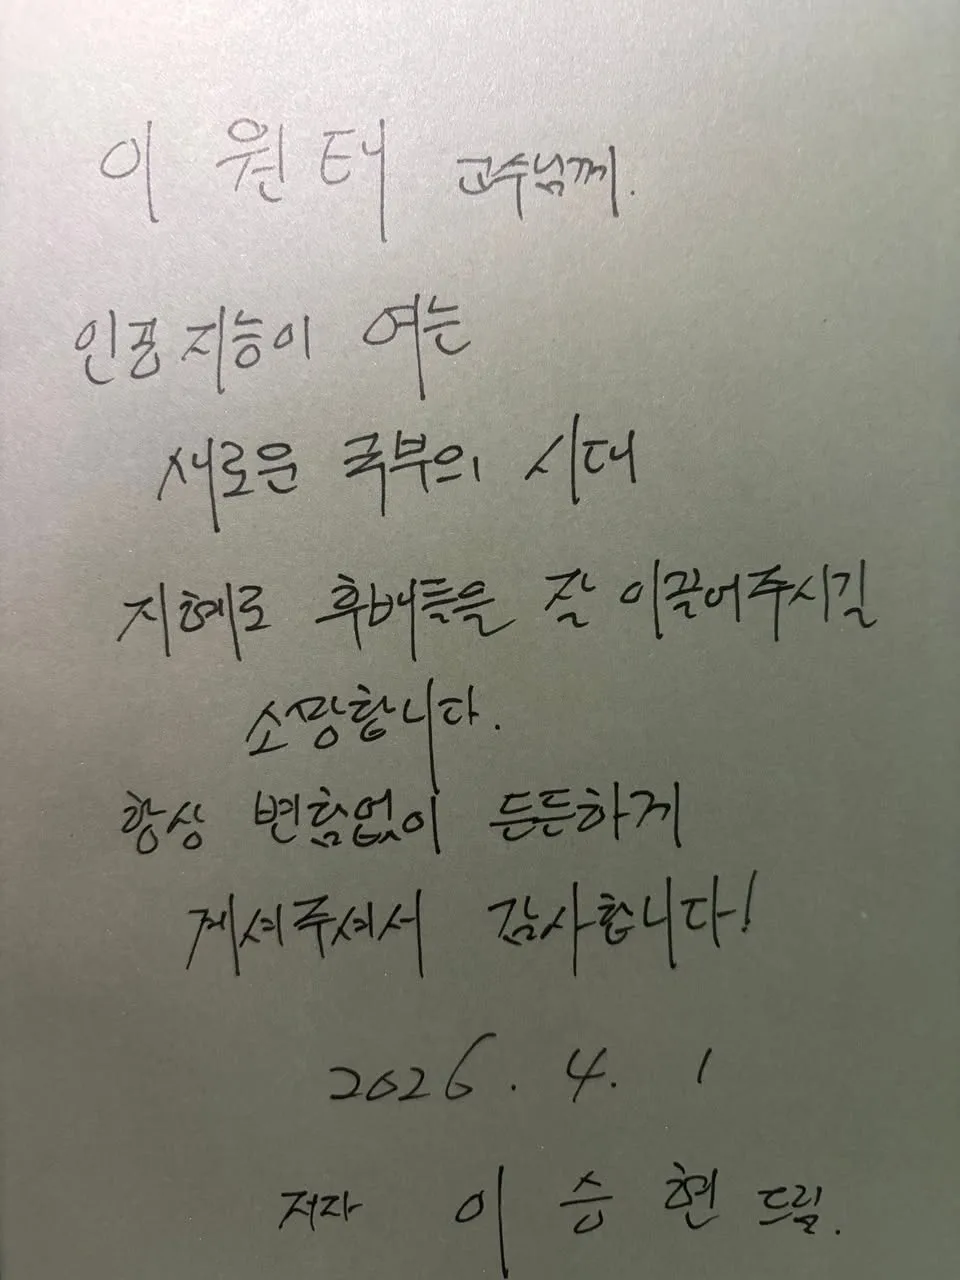 이 원 태 교수님께.
인공지능이 여는
새로운 국부의 시대
지혜로 후배들을 잘 이끌어주시길
소망합니다.
항상 변함없이 든든하게
계셔주셔서 감사합니다!
2026. 4. 1
저자 이 승 현 드림.